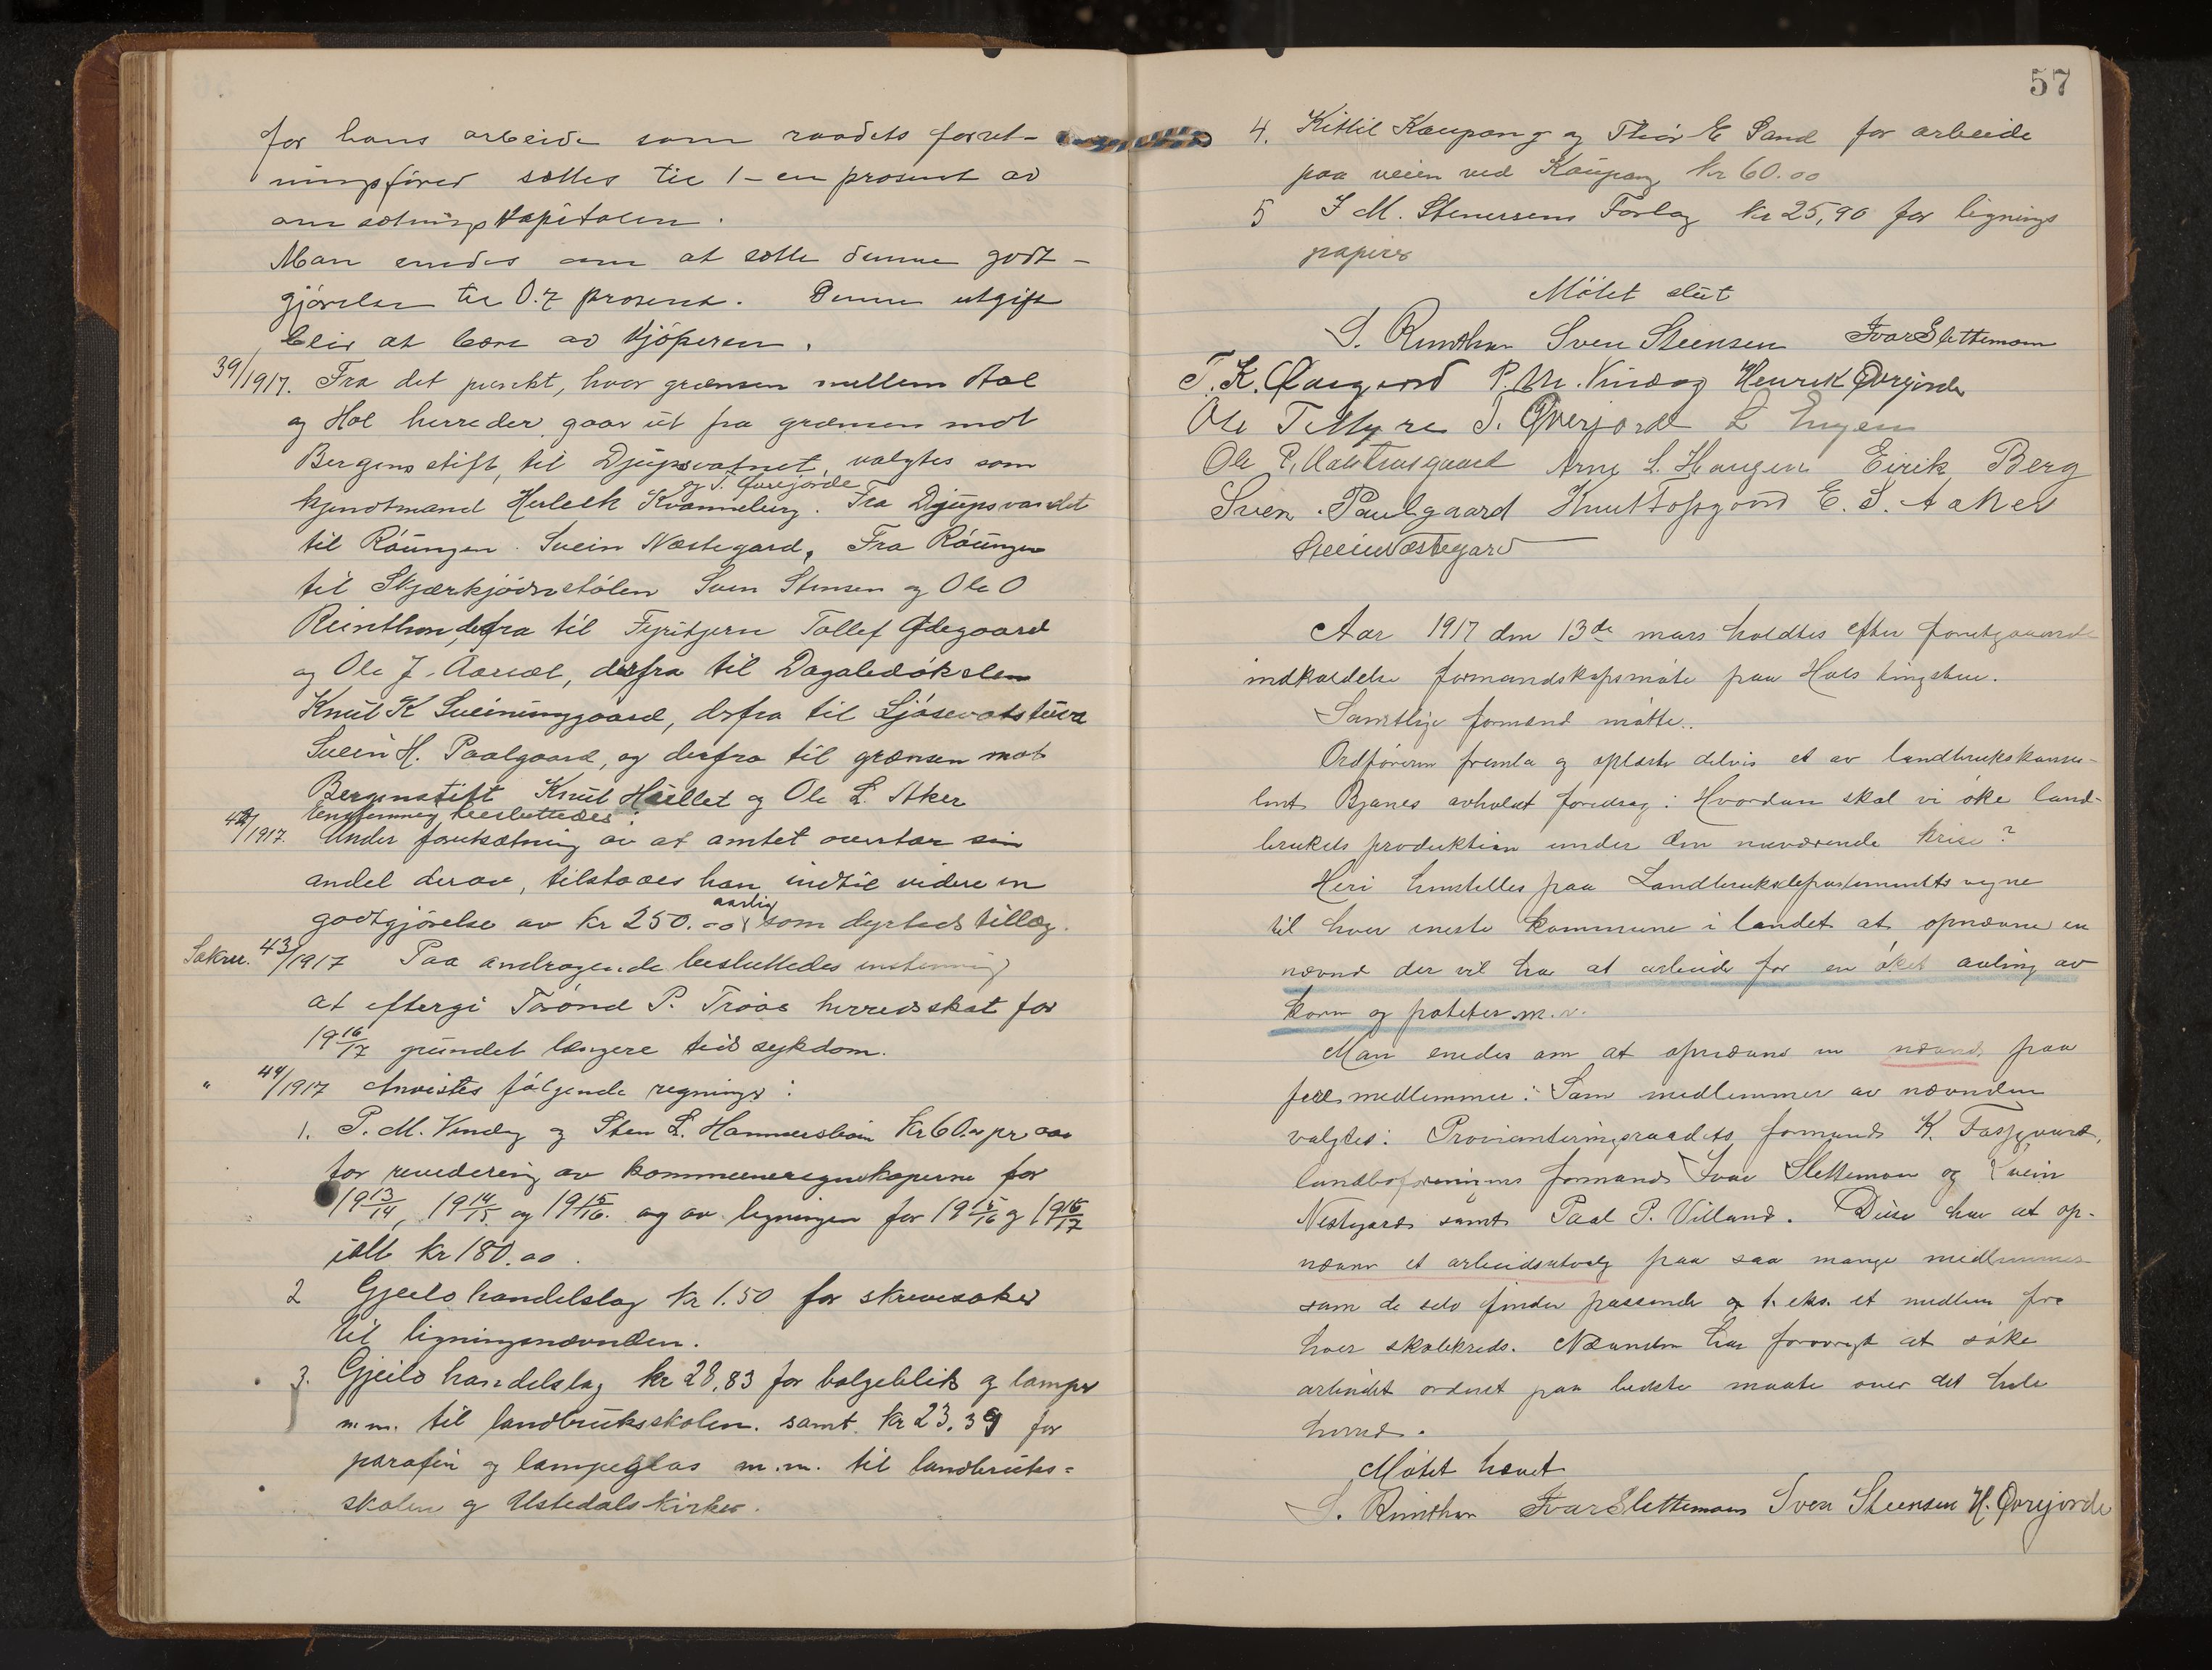 for hans arbeide som raadets forret-
ningsfører sættes til 1 - en prosent av
omsætningskapitalen.
Man enedes om at sætte denne godt-
gjørelse til 0.7 prosent. Denne utgift
blir at bære av kjøperen.
39/1917. Fra det punkt, hvor grænsen mellem Aal
og Hol herreder gaar ut fra grænsen mot
Bergens stift, til Djupsvatnet, valgtes som
og T. Øvrejorde
kjendtmand Herleik Kvanneberg. Fra Djupsvandet
til Røungen Svein Nestegard, Fra Røungen
til Skjærkjødnstølen Sven Stensen og Ole O
Reinthon, derfra til Fyritjern Tollef Ødegaard
og Ole J. Aarset, derfra til Dagaledøkelen
Knut K Sveinunggaard, derfra til Ljøsevatstuva
Svein H. Paalgaard, og derfra til grænsen mot
Bergenstift Knut Hællet og Ole L. Aker
Enstemmig besluttedes:
42/1917. Under forutsætning av at amtet overtar sin
andel derav, tilstaaes han indtil videre en
aarlig
godtgjørelse av kr 250.00 som dyrtids tillæg.
Saknr. 43/1917 Paa andragende besluttedes enstemmig
at eftergi Trond P. Traae herredsskat for
19 16/17 grundet længere tids sykdom.
" 44/1917 Anvistes følgende regninger:
1. P. M. Vindeg og Sten L. Hammersbøin kr 60.00 pr aar
for revidering av kommuneregnskaperne for
19 13/14, 19 14/15 og 19 15/16. og av ligningen for 19 15/16 og 19 16/17
ialt kr 180.00.
2 Gjeilo handelslag kr 1.50 for skrivesaker
til ligningsnævnden.
3. Gjeilo handelslag kr 28.83 for bølgeblik og lamper
m.m. til landbruksskolen. samt kr 23.39 for
parafin og lampeglas m.m. til landbruks=
skolen og Ustedalskirken.
57
4. Kittil Kaupang og Thor E Sand for arbeide
paa veien ved Kaupang kr 60.00
5 J M. Stenersens Forlag kr 25,90 for lignings
papirer
Møtet slut
S. Rinthun Sven Steensen Ivar Slettemoen
T. K. Øaagaard P. M. Vindeg Henrik Øvrejorde
Ole T Myre T. Øverjorde L Engen
Ole P. Arne L. Haugen Eirik Berg
Sven Paulgaard Knut Fossgard E. S. Aaker
Svein Nestegard
Aar 1917 den 13de mars holdtes efter forutgaaende
indkaldelse formandskapsmøte paa Hols tingstue.
Samtlige formænd møtte.
Ordføreren fremla og oplæste delvis et av landbrukskonsu-
lent Bjanes avholdt foredrag: Hvordan skal vi øke land-
brukets produktion under den nuværende krise?
Heri henstilles paa Landbruksdepartementets vegne
til hver eneste kommune i landet at opnævne en
nævnd der vil ha at arbeide for en øket avling av
korn og poteter m.v.
Man enedes om at opnævne en nævnd paa
fire medlemmer: Som medlemmer av nævnden
valgtes: Provianteringsraadets formand K. Fossgaard,
landboforeningens formand Ivar Slettemoen og Svein
Nestegard samt Paal P. Villand. Disse har at op-
nævne et arbeidsutvalg paa saa mange medlemmer
som de selv finder passende og t. eks. et medlem fra
hver skolekreds. Nævnden har forøvrigt at søke
arbeidet ordnet paa bedste maate over det hele
herred.
Møtet hævet
S. Rinthun Ivar Slettemoen Sven Steensen H. Øvrejorde